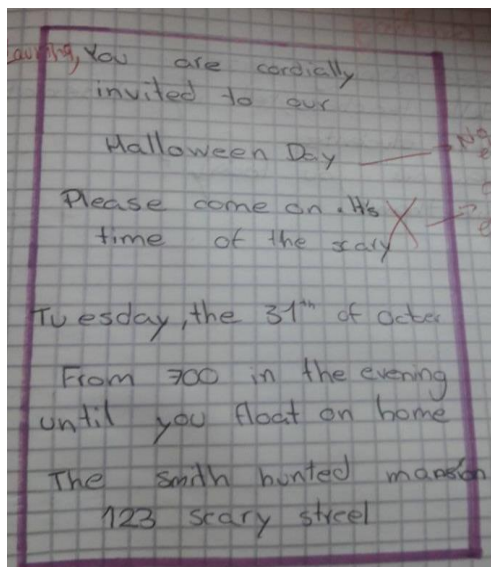 You are cordially
invited to our
Halloween Day
Please come on. It's
time of the scary
Tuesday, the 31th of octer
From 700 in the evening
until you float on home
The smith hunted mansion
123 scary streel